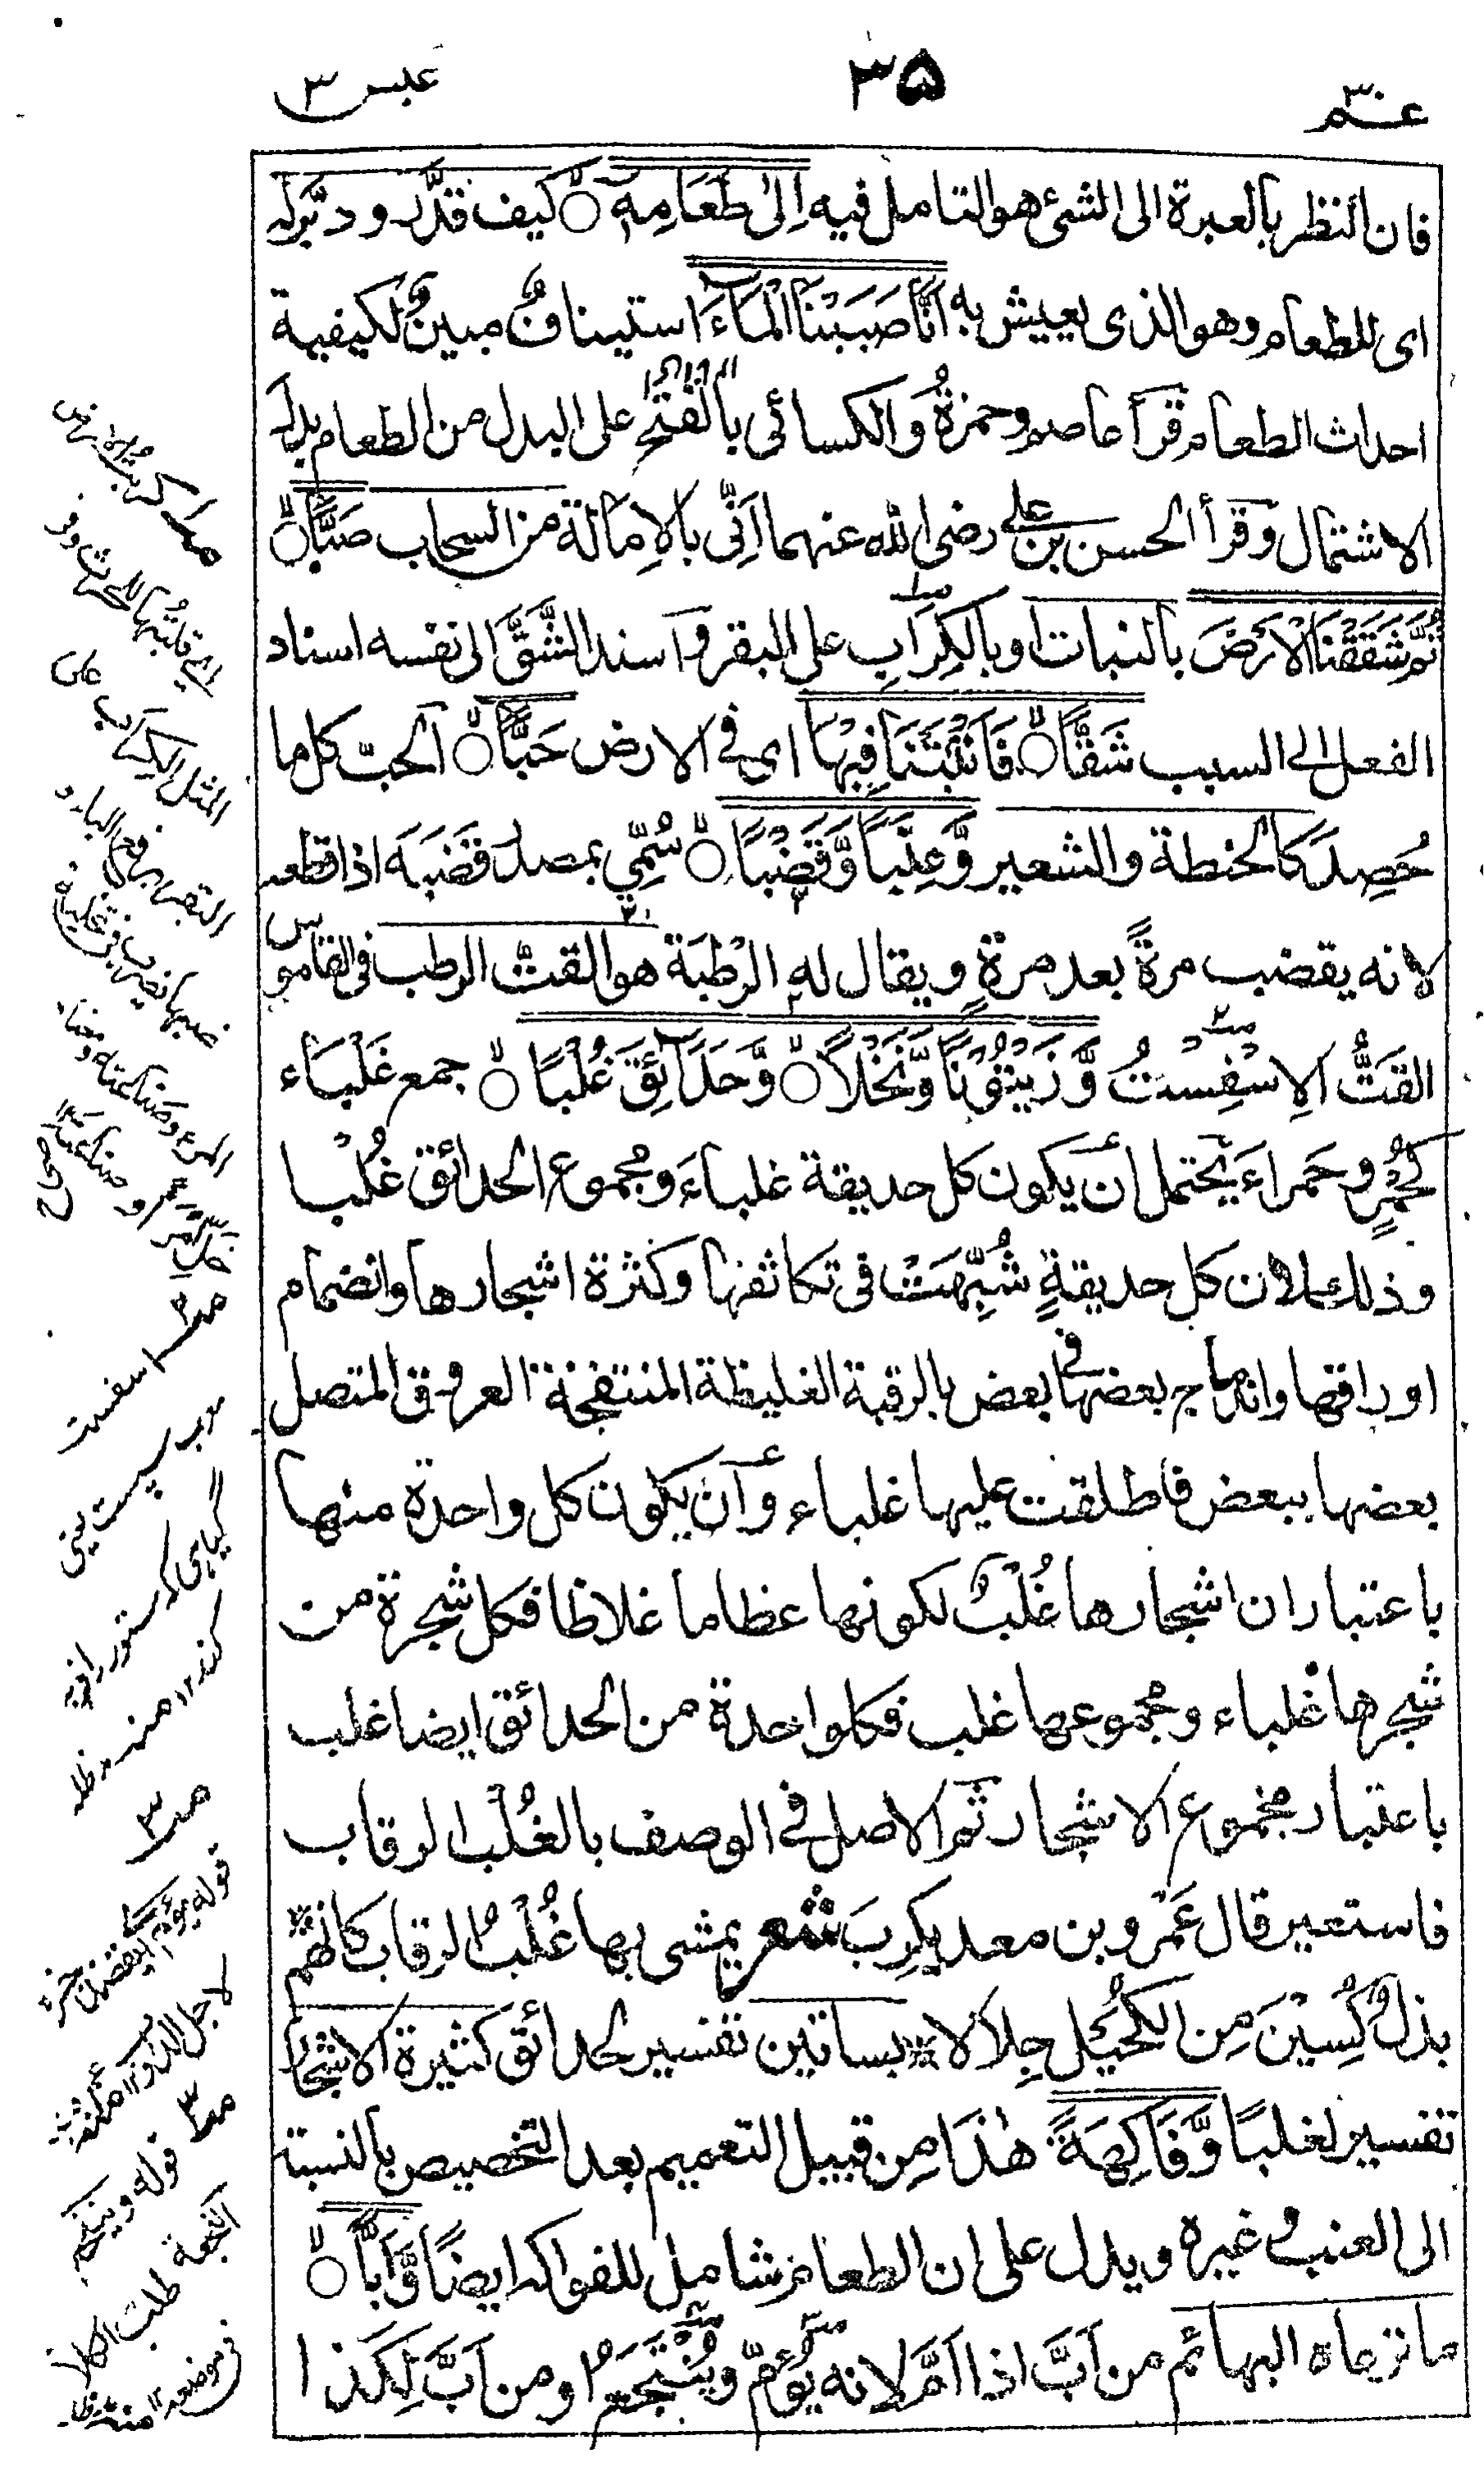 عم ٣٠
٣٥
عبس ٣
فان النظر بالعبرة الى الشئ هو التامل فيه اِلىٰ طَعَامِهٖ كيف قدَّر ودبَّر له
اى للطعام وهو الذى يعيش به اَنَّا صَبَبْنَا الْمَآءَ استينافٌ مبينٌ لكيفية
احداث الطعام قرأ عاصم وحمزةُ والكسائى بالفتح على البدل من الطعام بدل
الاشتمال وقرأ الحسن بن على رضى الله عنهما اَنّٰى بالاِمالة من السحاب صَبًّا
ثُمَّ شَقَقْنَا الْاَرْضَ بالنبات او بالكِرَابِ على البقر واَسند الشَّقَّ الى نفسه اسناد
الفعل الى السبب شَقًّا فَاَنْبَتْنَا فِيْهَا اى فى الارض حَبًّا اَلحبّ كل ما
حُصِدَ كالحنطة والشعير وَّعِنَبًا وَّقَضْبًا سُمِّى بمصدر قَضَبَه اذا قطعه
لانه يقضب مرةً بعد مرةٍ ويقال له الرَّطْبَة هو القتّ الرطب فى القاموس
القَتُّ الاِسْفِسْتُ وَّزَيْتُوْنًا وَّنَخْلًا وَّحَدَآئِقَ غُلْبًا جمع غَلْبَاء
كحُمْرٍ وحَمراءَ يحتمل اَن يكون كل حديقة غلباءَ ومجموع الحدائق غُلبا
وذلك لان كل حديقةٍ شُبِّهَتْ فى تكاثفها وكثرة اشجارها وانضمام
اوراقها واندماج بعضها فى بعض بالرقبة الغليظة المنتفخة العروق المتصل
بعضها ببعض فاطلقت عليها غلباء واَن يكون كل واحدة منها
باعتبار ان اشجارها غُلْبٌ لكونها عظاما غلاظا فكل شجرة من
شجرها غلباء ومجموعها غلب فكل واحدة من الحدائق ايضا غلب
باعتبار مجموع الاشجار ثم الاصل فى الوصف بالغُلْب الرقاب
فاستعير قال عَمْرو بن معديكرِبَ شعر يمشى بها غُلْبُ الرقاب كانهم
بُذلٌ كُسِيْنَ مِن الكُحَيْل جِلالا بساتين تفسير لحدائق كثيرة الاشجار
تفسير لغلبا وَّفَاكِهَةً هٰذَا مِن قبيل التعميم بعد التخصيص بالنسبة
الى العنب وغيره ويدل على ان الطعام شامل للفواكه ايضًا وَّاَبًّا
ما ترعاه البهائم من اَبَّ اذا اَمَّ لانه يُؤَمّ ويُنْتَجَعُ او من اَبَّ لِكَذا
كربت الارض
اى قلبتها للحرث وفى
المثل الكراب على
البقر
صحاح
اسفست
معرب سپست يعنى
گياهى كه ستور را فربه
كند ١٢ منه
قوله يؤم اى يقصد
لاجل الدواب ١٢
قوله وينتجع
النجعة طلب الكلأ
فى موضعه ١٢ منه